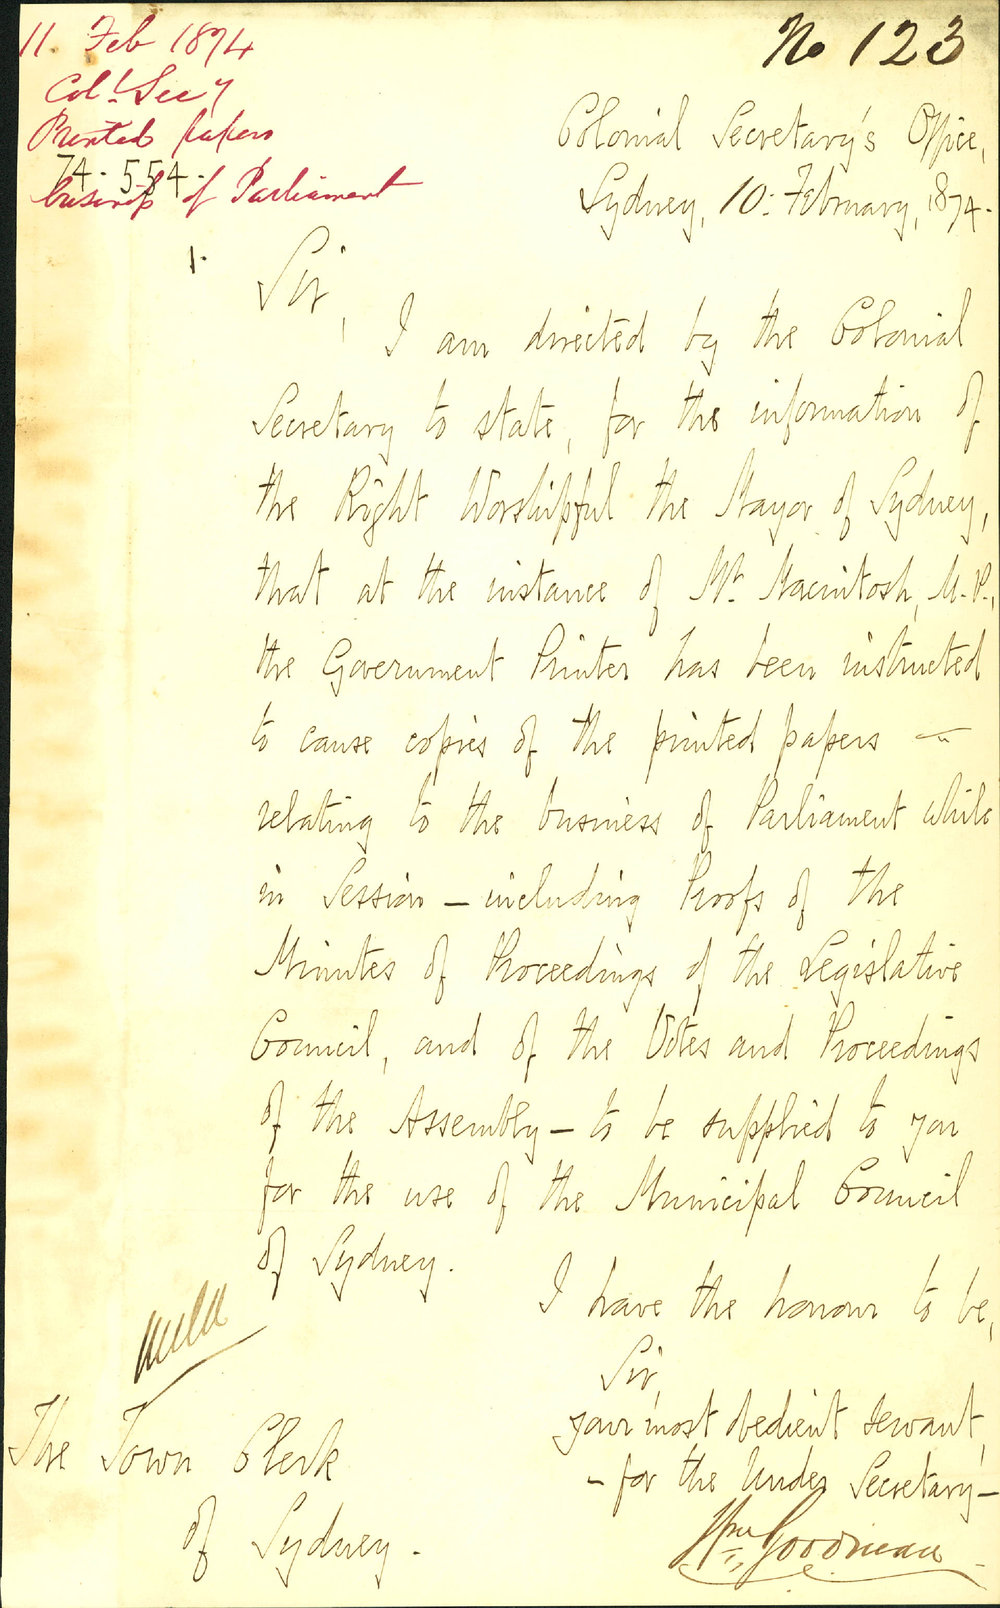 11. Feb 1874
Col. Secy
Printed papers
74. 554.
business of Parliament
No 123
Colonial Secretary's Office,
Sydney, 10: February, 1874.
1.
Sir,
I am directed by the Colonial
Secretary to state, for the information of
the Right Worshipful the Mayor of Sydney,
that at the instance of Mr. Macintosh, M.P.,
the Government Printer has been instructed
to cause copies of the printed papers —
relating to the business of Parliament while
in Session — including Proofs of the
Minutes of Proceedings of the Legislative
Council, and of the Votes and Proceedings
of the Assembly — to be supplied to you
for the use of the Municipal Council
of Sydney.
I have the honour to be,
Sir,
your most obedient servant,
- for the Under Secretary -
Wm Goodman
The Town Clerk
of Sydney.